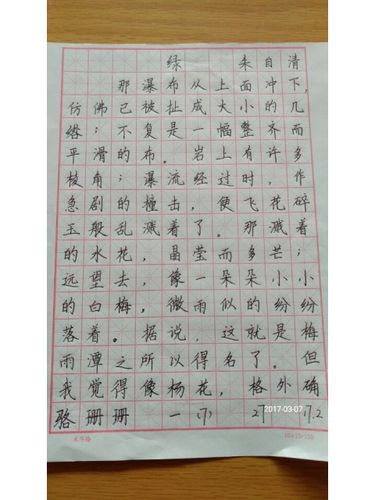 绿 朱自清
那瀑布从上面冲下,
仿佛已被扯成大小的几
绺;不复是一幅整齐而
平滑的布。岩上有许多
棱角;瀑流经过时,作
急剧的撞击,便飞花碎
玉般乱溅着了。那溅着
的水花,晶莹而多芒;
远望去,像一朵朵小小
的白梅,微雨似的纷纷
落着。据说,这就是梅
雨潭之所以得名了。但
我觉得像杨花,格外确
骆珊珊 一(7) 27 17.2
2017-03-07